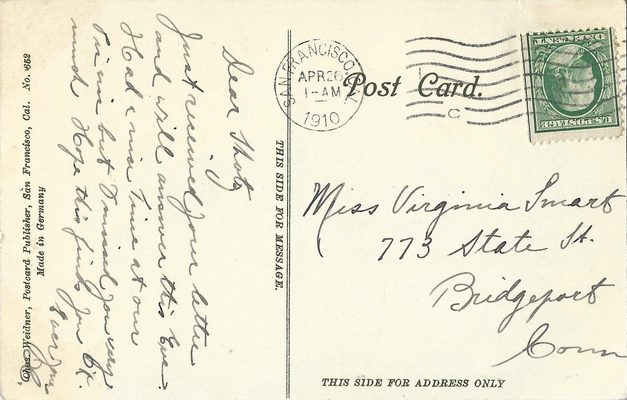 Post Card.
SAN FRANCISCO, CAL.
APR 26
1-AM
1910
C
U.S. POSTAGE
Dear Shorty
Just received your letter
and will answer this Eve-
Had a nice time at our
Picnic but I missed you very
much Hope this finds you O.K.
Ever yours
THIS SIDE FOR MESSAGE.
Miss Virginia Smart
773 State St.
Bridgeport
Conn
THIS SIDE FOR ADDRESS ONLY
Chas. Weidner, Postcard Publisher, San Francisco, Cal. No. 652
Made in Germany